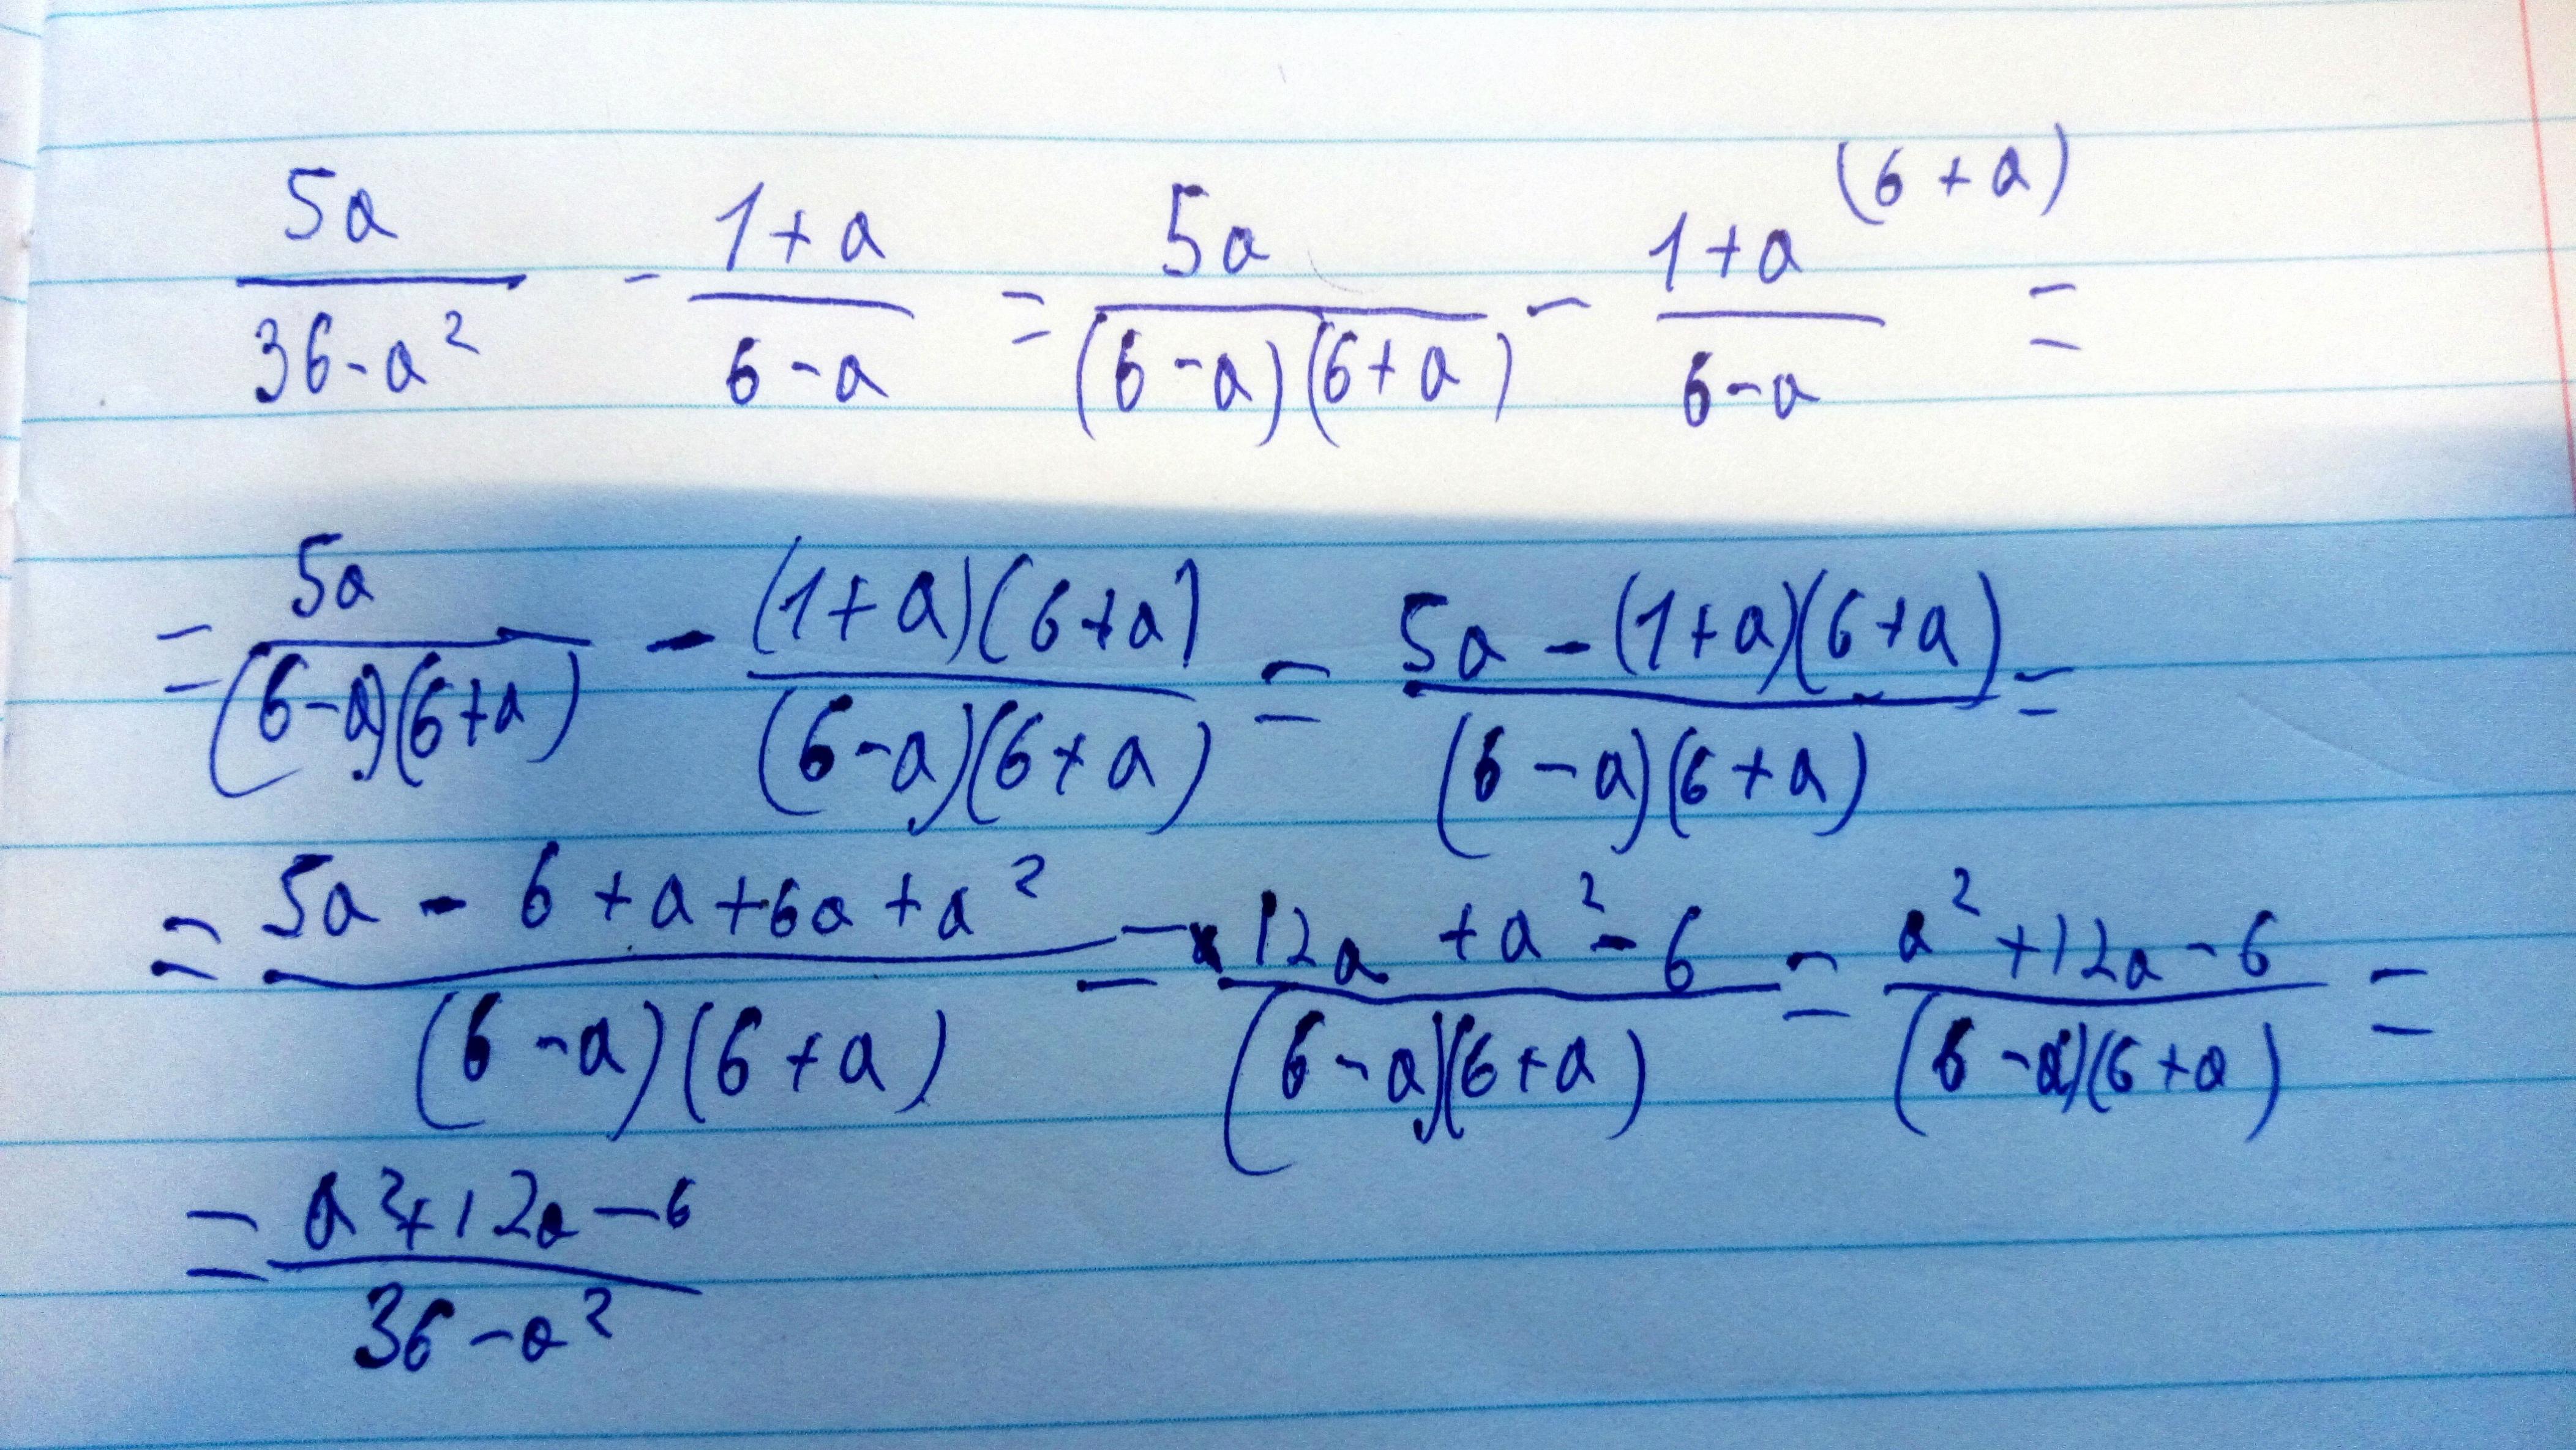 5a/(36-a²) - (1+a)/(6-a) = 5a/((6-a)(6+a)) - (1+a)/(6-a) (6+a) =
= 5a/((6-a)(6+a)) - ((1+a)(6+a))/((6-a)(6+a)) = (5a-(1+a)(6+a))/((6-a)(6+a)) =
= (5a-6+a+6a+a²)/((6-a)(6+a)) = (12a+a²-6)/((6-a)(6+a)) = (a²+12a-6)/((6-a)(6+a)) =
= (a²+12a-6)/(36-a²)